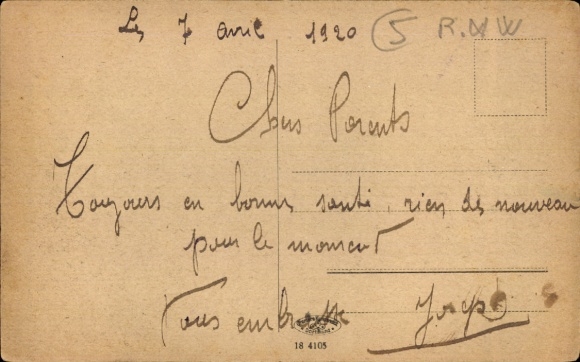 Le 7 avril 1920 5 R.MW
Chers Parents
Toujours en bonne santé, rien de nouveau
pour le moment
Vous embrasse Joseph
18 4105